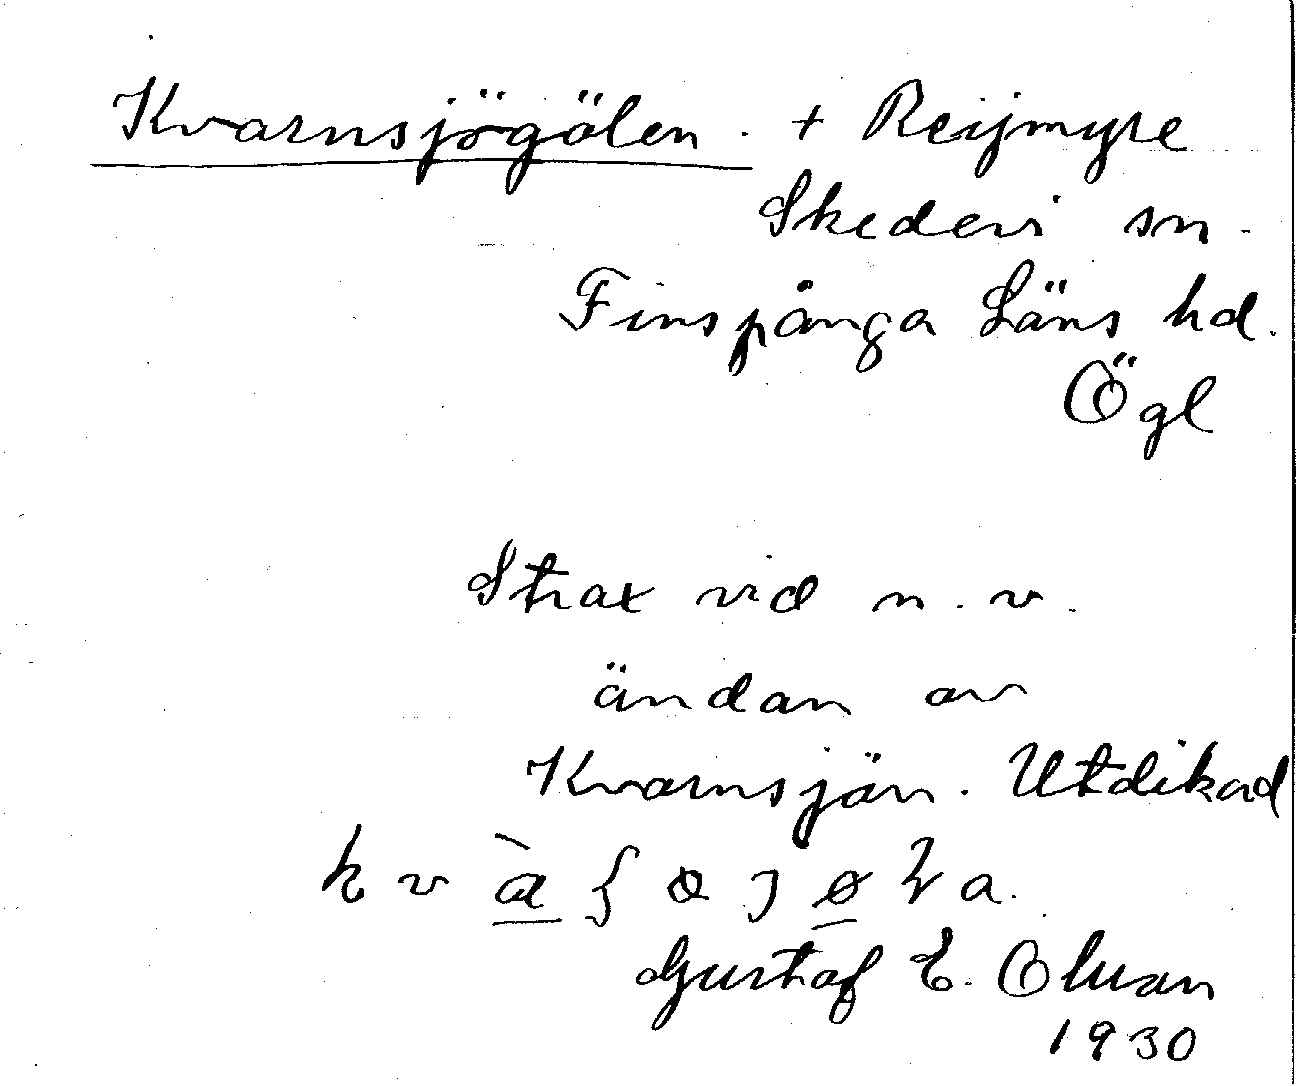 Kvarnsjögölen. + Reijmyre
Skedevi sn.
Finspånga Läns hd.
Ögl
Strax vid n. v.
ändan av
Kvarnsjön. Utdikad
Gustaf E.
1930